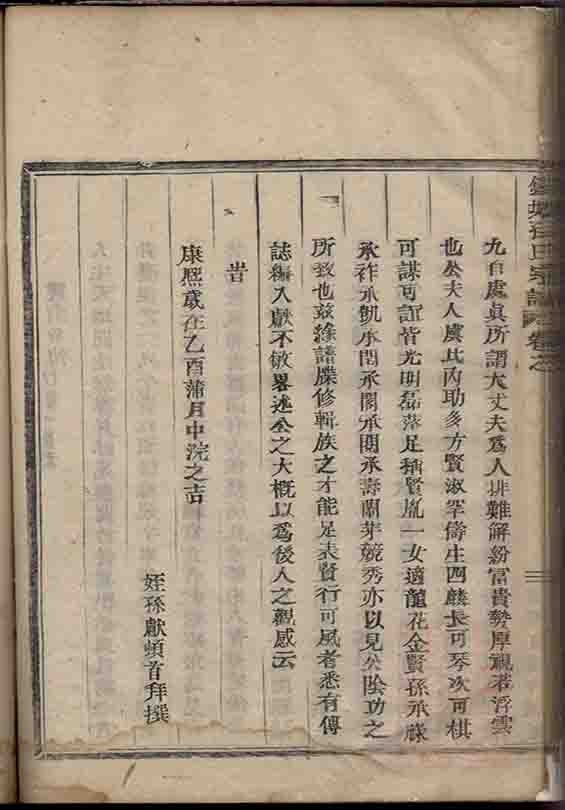 氏宗譜 卷之
九自處真所謂大丈夫爲人排難解紛富貴勢厚視若浮雲
也公夫人虞氏內助多方賢淑罕儔生四麟長可琴次可棋
可謀可誼皆光明磊落足稱賢胤一女適龍花金賢孫承祿
承祚承凱承閏承闌承閑承壽蘭芽競秀亦以見公陰功之
所致也茲緣譜牒修輯族之才能足表賢行可風者悉有傳
誌編入獻不敏畧述公之大概以爲後人之觀感云
旹
康熙歲在乙酉蒲月中浣之吉
姪孫獻頓首拜撰